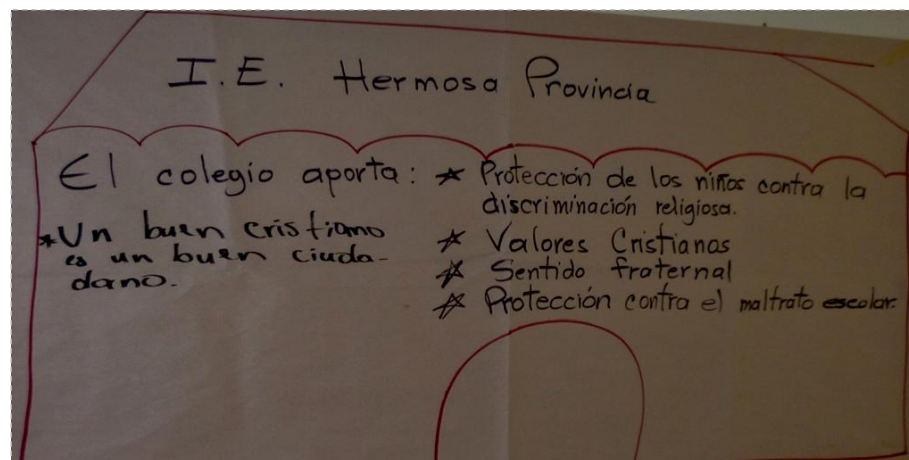 I.E. Hermosa Provincia
El colegio aporta:
* Un buen cristiano
es un buen ciuda-
dano.
* Protección de los niños contra la
discriminación religiosa.
* Valores Cristianas
* Sentido fraternal
* Protección contra el maltrato escolar.